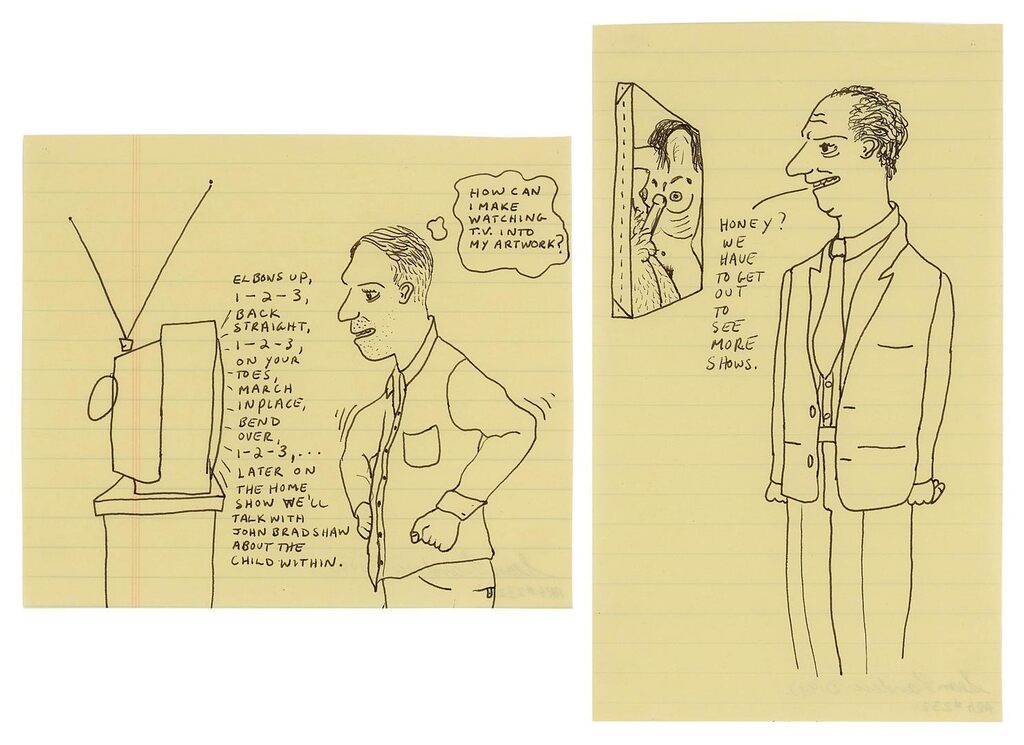 HOW CAN
I MAKE
WATCHING
T.V. INTO
MY ARTWORK?
ELBONS UP,
1-2-3,
BACK
STRAIGHT,
1-2-3,
ON YOUR
TOES,
MARCH
INPLACE,
BEND
OVER,
1-2-3,...
LATER ON
THE HOME
SHOW WE'LL
TALK WITH
JOHN BRADSHAW
ABOUT THE
CHILD WITHIN.
HONEY?
WE
HAVE
TO GET
OUT
TO
SEE
MORE
SHOWS.